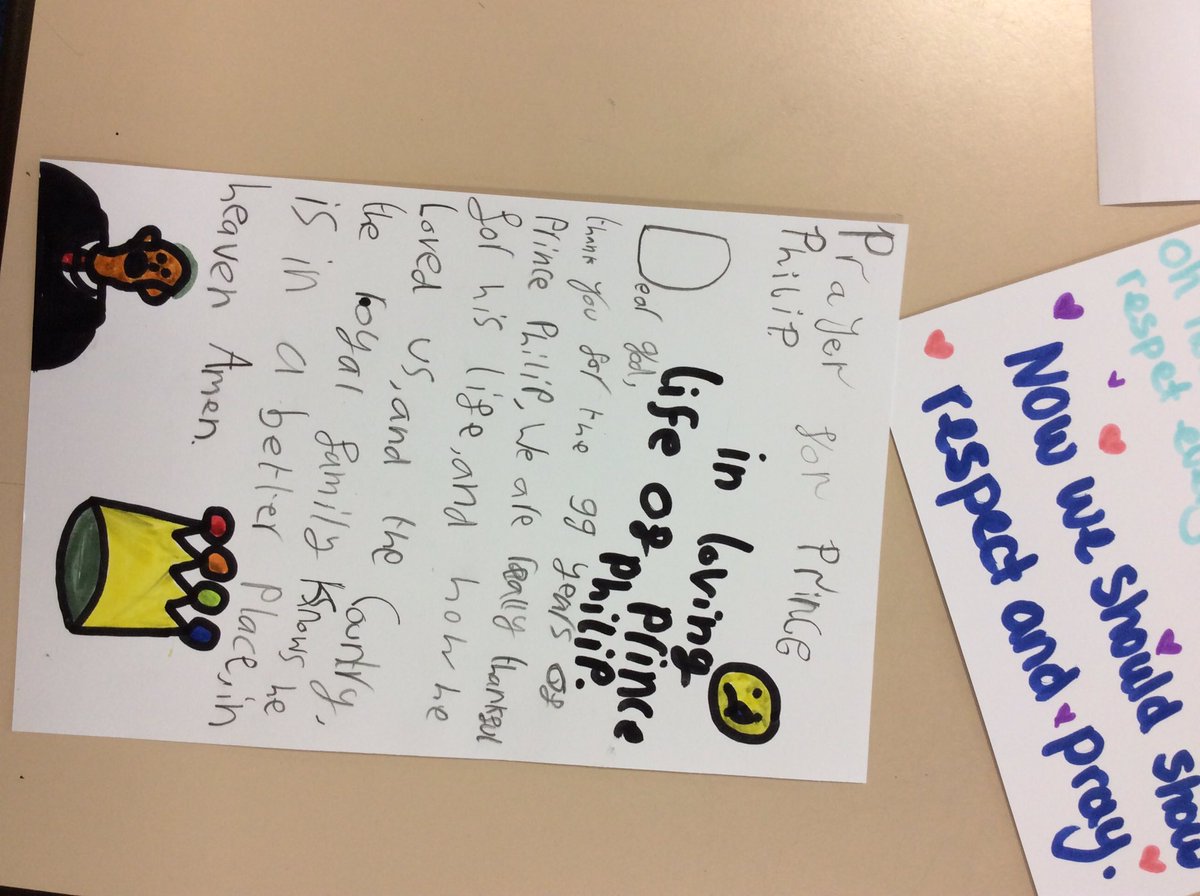 Prayer for Prince
Philip
in loving
life of Prince
Philip.
Dear god,
thank you for the 99 years of
Prince Philip, We are really thankful
for his life, and how he
Loved us, and the Country,
the royal family knows he
is in a better place, in
heaven Amen.
respet
Now we should
respect and pray.